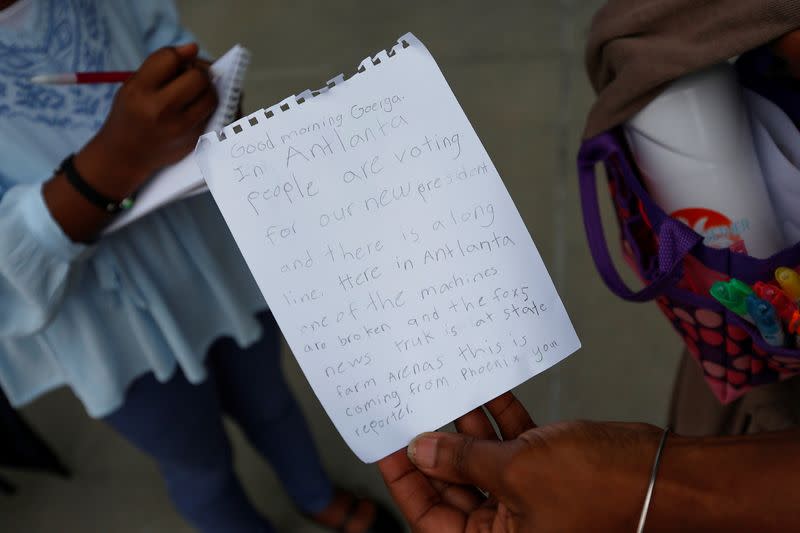 Good morning Goerga.
In Antlanta
people are voting
for our new president
and there is a long
line. Here in Antlanta
one of the machines
are broken and the fox5
news truk is at state
farm Arenas this is
coming from Phoenix your
reporter.